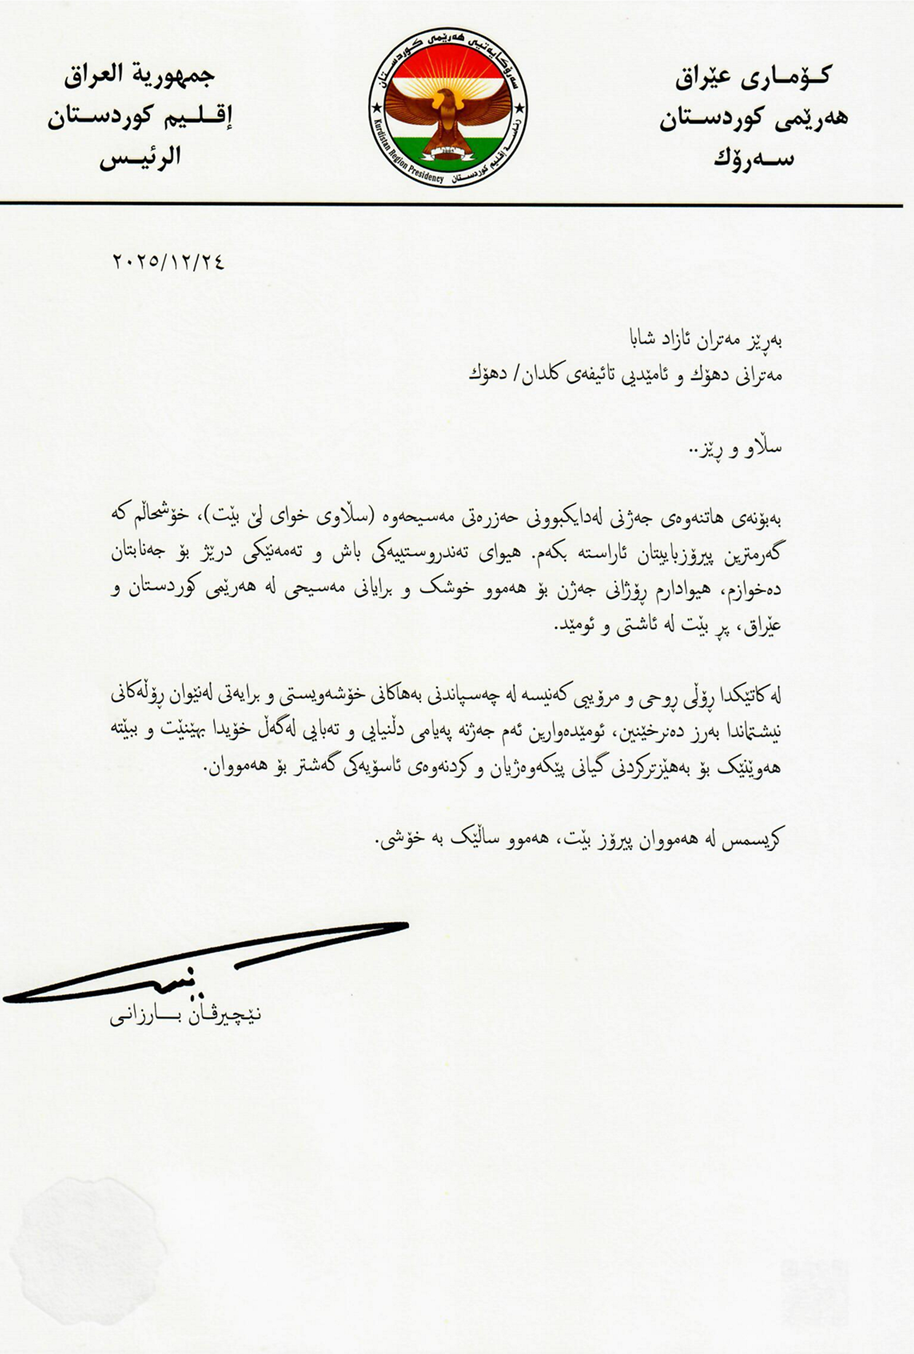 كۆماری عێراق
هەرێمی كوردستان
سەرۆك
سەرۆكایەتیی هەرێمی كوردستان
رئاسة إقليم كوردستان
Kurdistan Region Presidency
جمهورية العراق
إقليم كوردستان
الرئيس
٢٠٢٥/١٢/٢٤
بەڕێز مەتران ئازاد شابا
مەترانی دهۆك و ئامێدیی تائیفەی كلدان/ دهۆك
سڵاو و ڕێز..
بەبۆنەی هاتنەوەی جەژنی لەدایكبوونی حەزرەتی مەسیحەوە (سڵاوی خوای لێ بێت)، خۆشحاڵم كە
گەرمترین پیرۆزباییتان ئاراستە بكەم. هیوای تەندروستییەكی باش و تەمەنێكی درێژ بۆ جەنابتان
دەخوازم، هیوادارم ڕۆژانی جەژن بۆ هەموو خوشک و برایانی مەسیحی لە هەرێمی كوردستان و
عێراق، پڕ بێت لە ئاشتی و ئومێد.
لەكاتێكدا ڕۆڵی ڕوحی و مرۆیی كەنیسە لە چەسپاندنی بەهاكانی خۆشەویستی و برایەتی لەنێوان ڕۆڵەكانی
نیشتماندا بەرز دەنرخێنین، ئومێدەوارین ئەم جەژنە پەیامی دڵنیایی و تەبایی لەگەڵ خۆیدا بهێنێت و ببێتە
هەوێنێک بۆ بەهێزتركردنی گیانی پێكەوەژیان و كردنەوەی ئاسۆیەكی گەشتر بۆ هەمووان.
كریسمس لە هەمووان پیرۆز بێت، هەموو ساڵێک بە خۆشی.
نێچیرڤان بارزانی